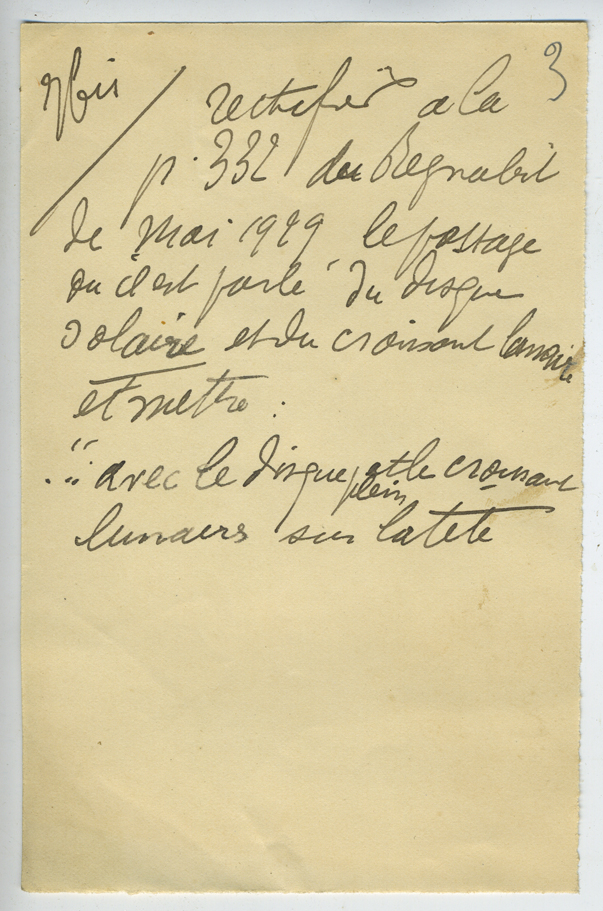 3
bis / rectifier a la
p. 332 du Regnabit
de Mai 1929 le passage
ou il est parlé du disque
solaire et du croissant lunaire
et mettre :
... avec le disque plein et le croissant
lunaires sur la tete